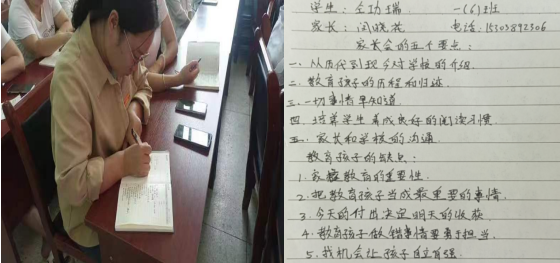 学生：仝功瑞 一(6)班
家长：闵晓花 电话：15303892306
家长会的五个要点：
一、从历代到现今对学校的介绍.
二、教育孩子的历程和归途.
三、一切事情早知道.
四、培养学生养成良好的阅读习惯.
五、家长和学校的沟通.
教育孩子的缺点：
1.家庭教育的重要性.
2.把教育孩子当成最重要的事情.
3.今天的付出决定明天的收获.
4.教育孩子做错事情要勇于担当.
5.找机会让孩子自立自强.